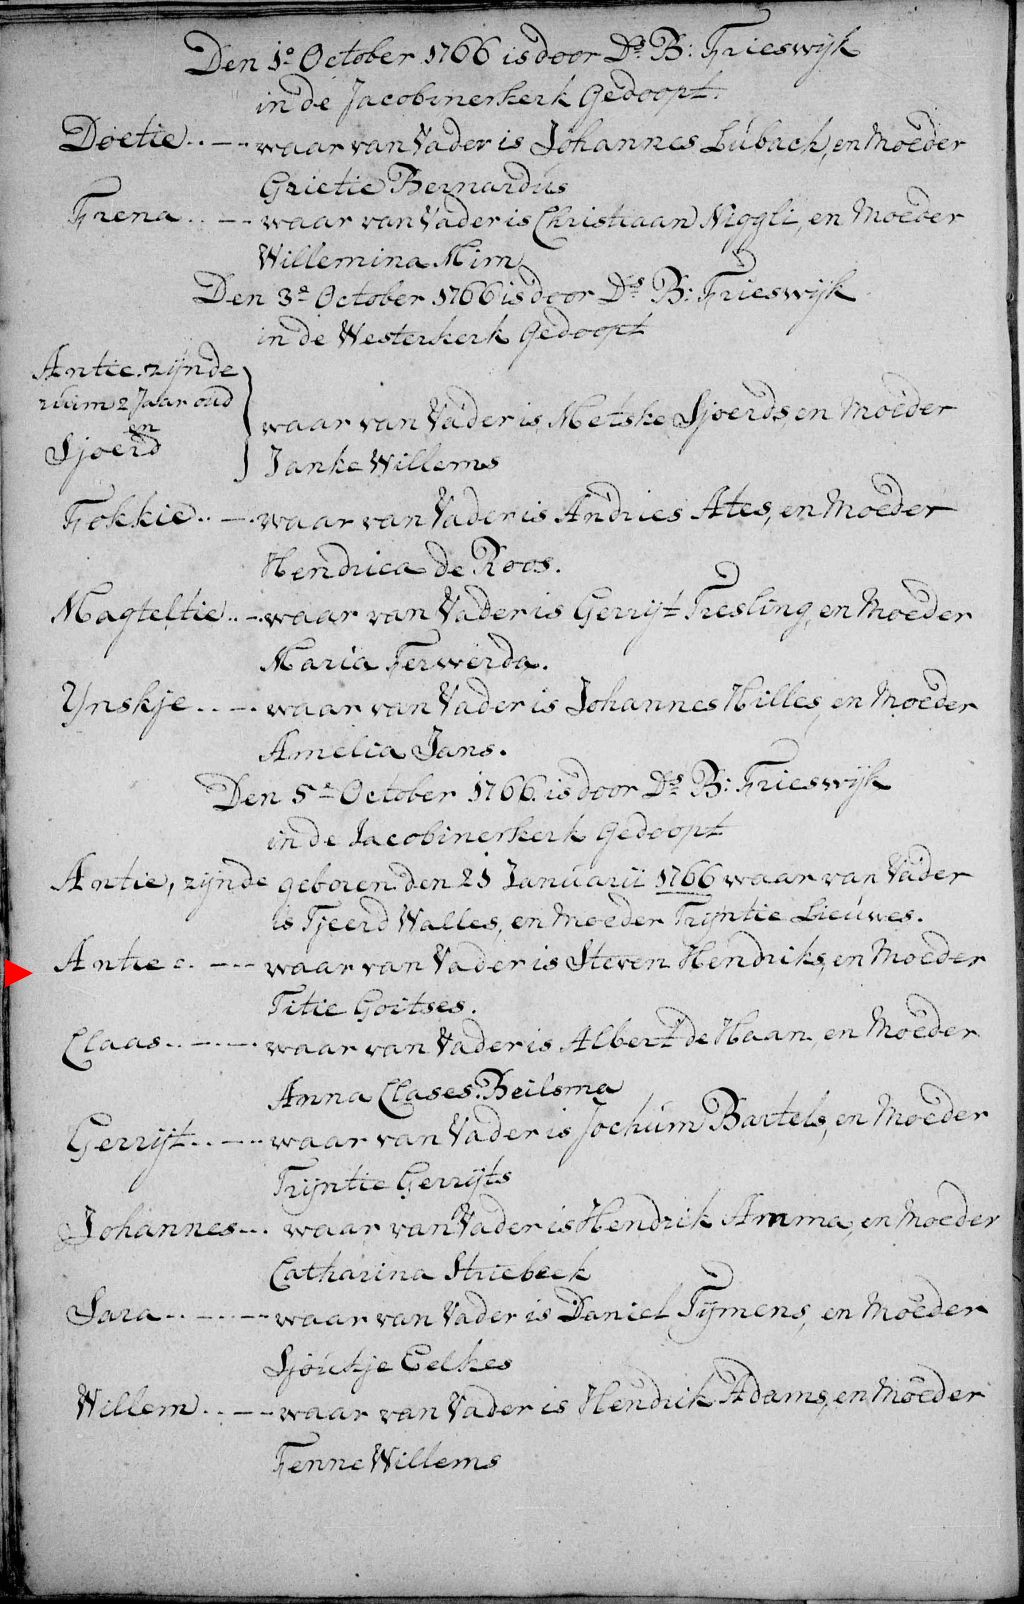 Den 1e October 1766 is door Ds. B: Frieswijk
in de Jacobinerkerk Gedoopt.
Doetie..-.. waar van Vader is Johannes Lubach, en Moeder
Grietie Bernardus
Frena..-- waar van Vader is Christiaan Niggli, en Moeder
Willemina Mim
Den 3e October 1766 is door Ds. B: Frieswijk
in de Westerkerk Gedoopt
Antie zijnde
ruim 2 Jaar oud
en
Sjoerd
waar van Vader is Metske Sjoerds, en Moeder
Janke Willems
Fokkie..-. waar van Vader is Andries Ates, en Moeder
Hendrica de Roos.
Magteltie..-. waar van Vader is Gerrijt Tresling, en Moeder
Maria Ferwerda.
Ynskje..-. waar van Vader is Johannes Hilles, en Moeder
Amelia Jans.
Den 5e October 1766. is door Ds. B: Frieswijk
in de Jacobinerkerk Gedoopt
Antie, zijnde geboren den 21 Januarii 1766 waar van Vader
is Tjeerd Walles, en Moeder Trijntie Lieuwes.
Antie..--- waar van Vader is Steven Hendriks, en Moeder
Titie Goitses.
Claas..-.-. waar van Vader is Albert de Haan, en Moeder
Anna Clases. Beilsma
Gerrijt..-.. waar van Vader is Jochum Bartels, en Moeder
Trijntie Gerrijts
Johannes--. waar van Vader is Hendrik Amma, en Moeder
Catharina Striebeek
Sara..-.-- waar van Vader is Daniel Tijmens, en Moeder
Sjoukje Eelkes
Willem..-- waar van Vader is Hendrik Adams, en Moeder
Fenne Willems